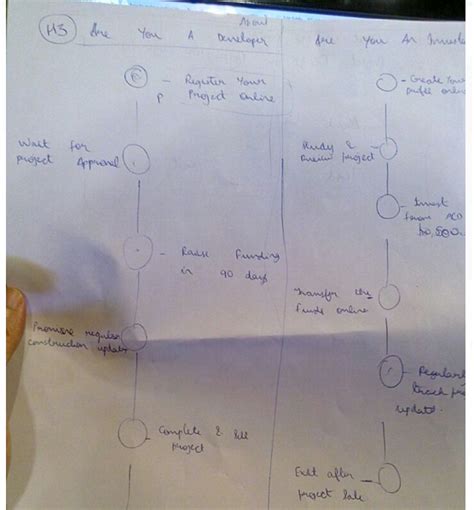 About
H3 Are You A Developer
Register Your
Project Online
P
Wait for
project Approval
Raise Funding
in 90 days
Promise regular
construction update
Complete & Sell
project
Are You An Investo
Create Your
profile online
Study &
review project
Invest
from AED
Transfer the
funds online
Regularl
track pro
update
Exit after
project Sale